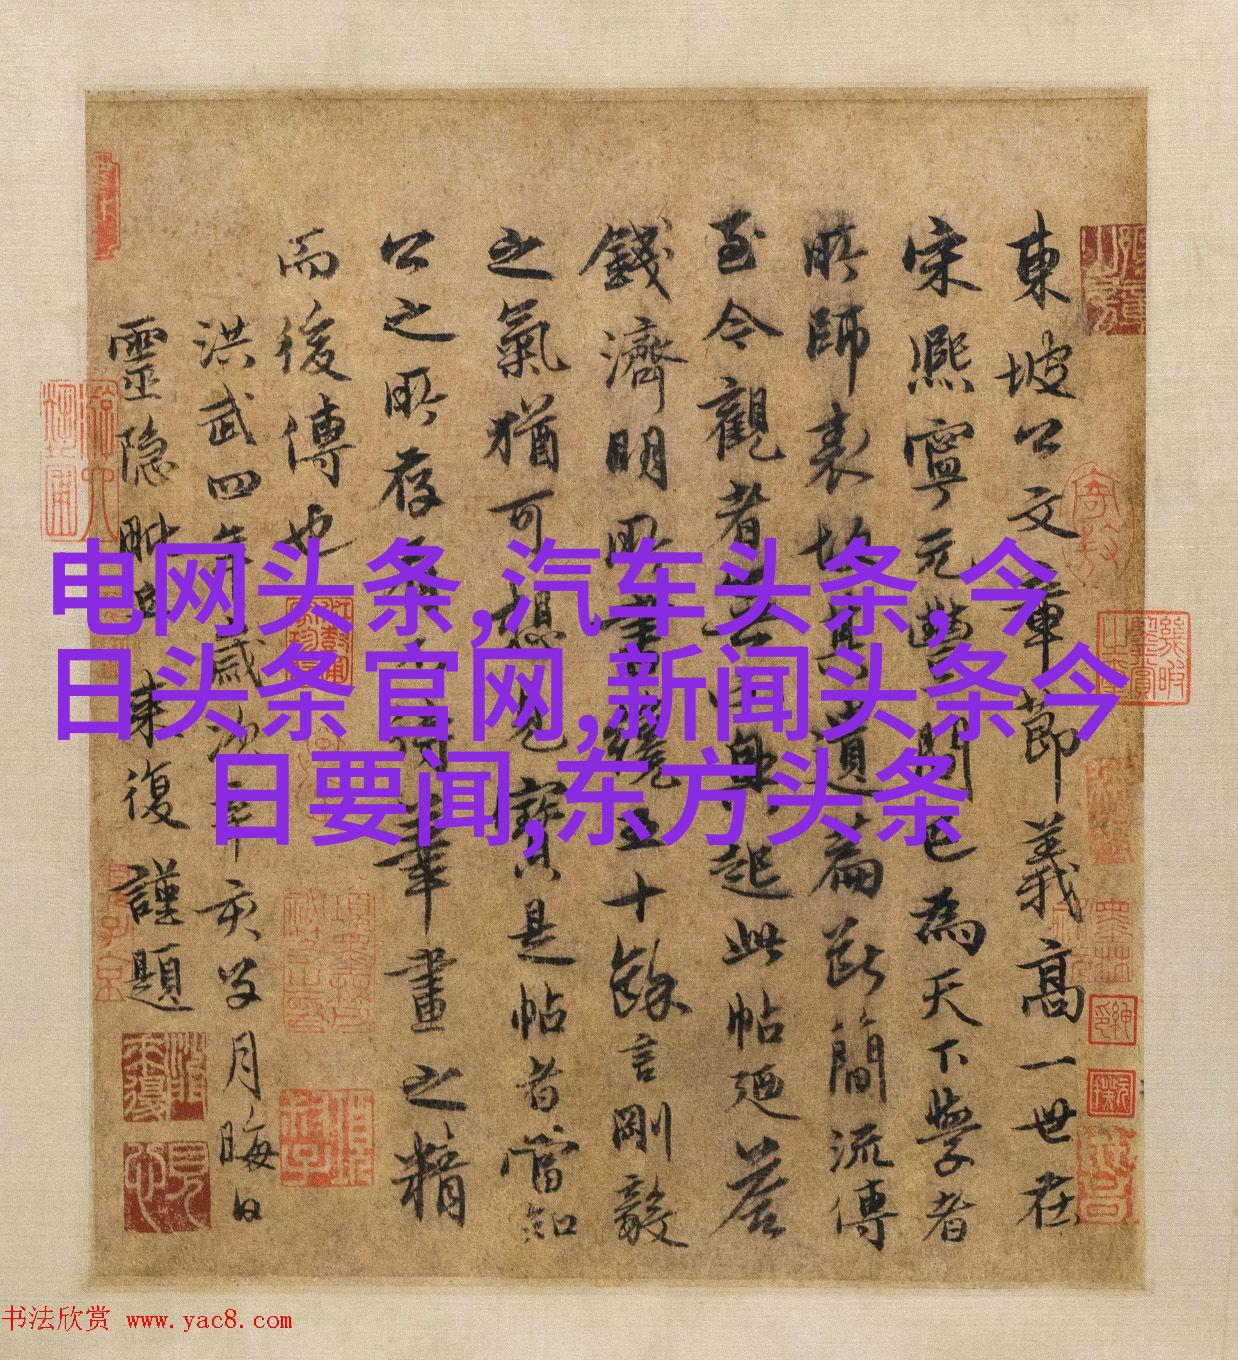 東坡公文章節義高一世在
宋熙寧元豐間已為天下學者
所師表故其遺篇斷簡流傳
至今觀者起此帖廼荅
錢濟明所纔五十餘言剛毅
之氣猶可想見寶是帖者當知
公之所存筆畫之精
而後傳也
洪武四年歲次辛亥月晦日
靈隱來復謹題
电网头条,汽车头条,今
日头条官网,新闻头条今
日要闻,东方头条
书法欣赏 www.yac8.com